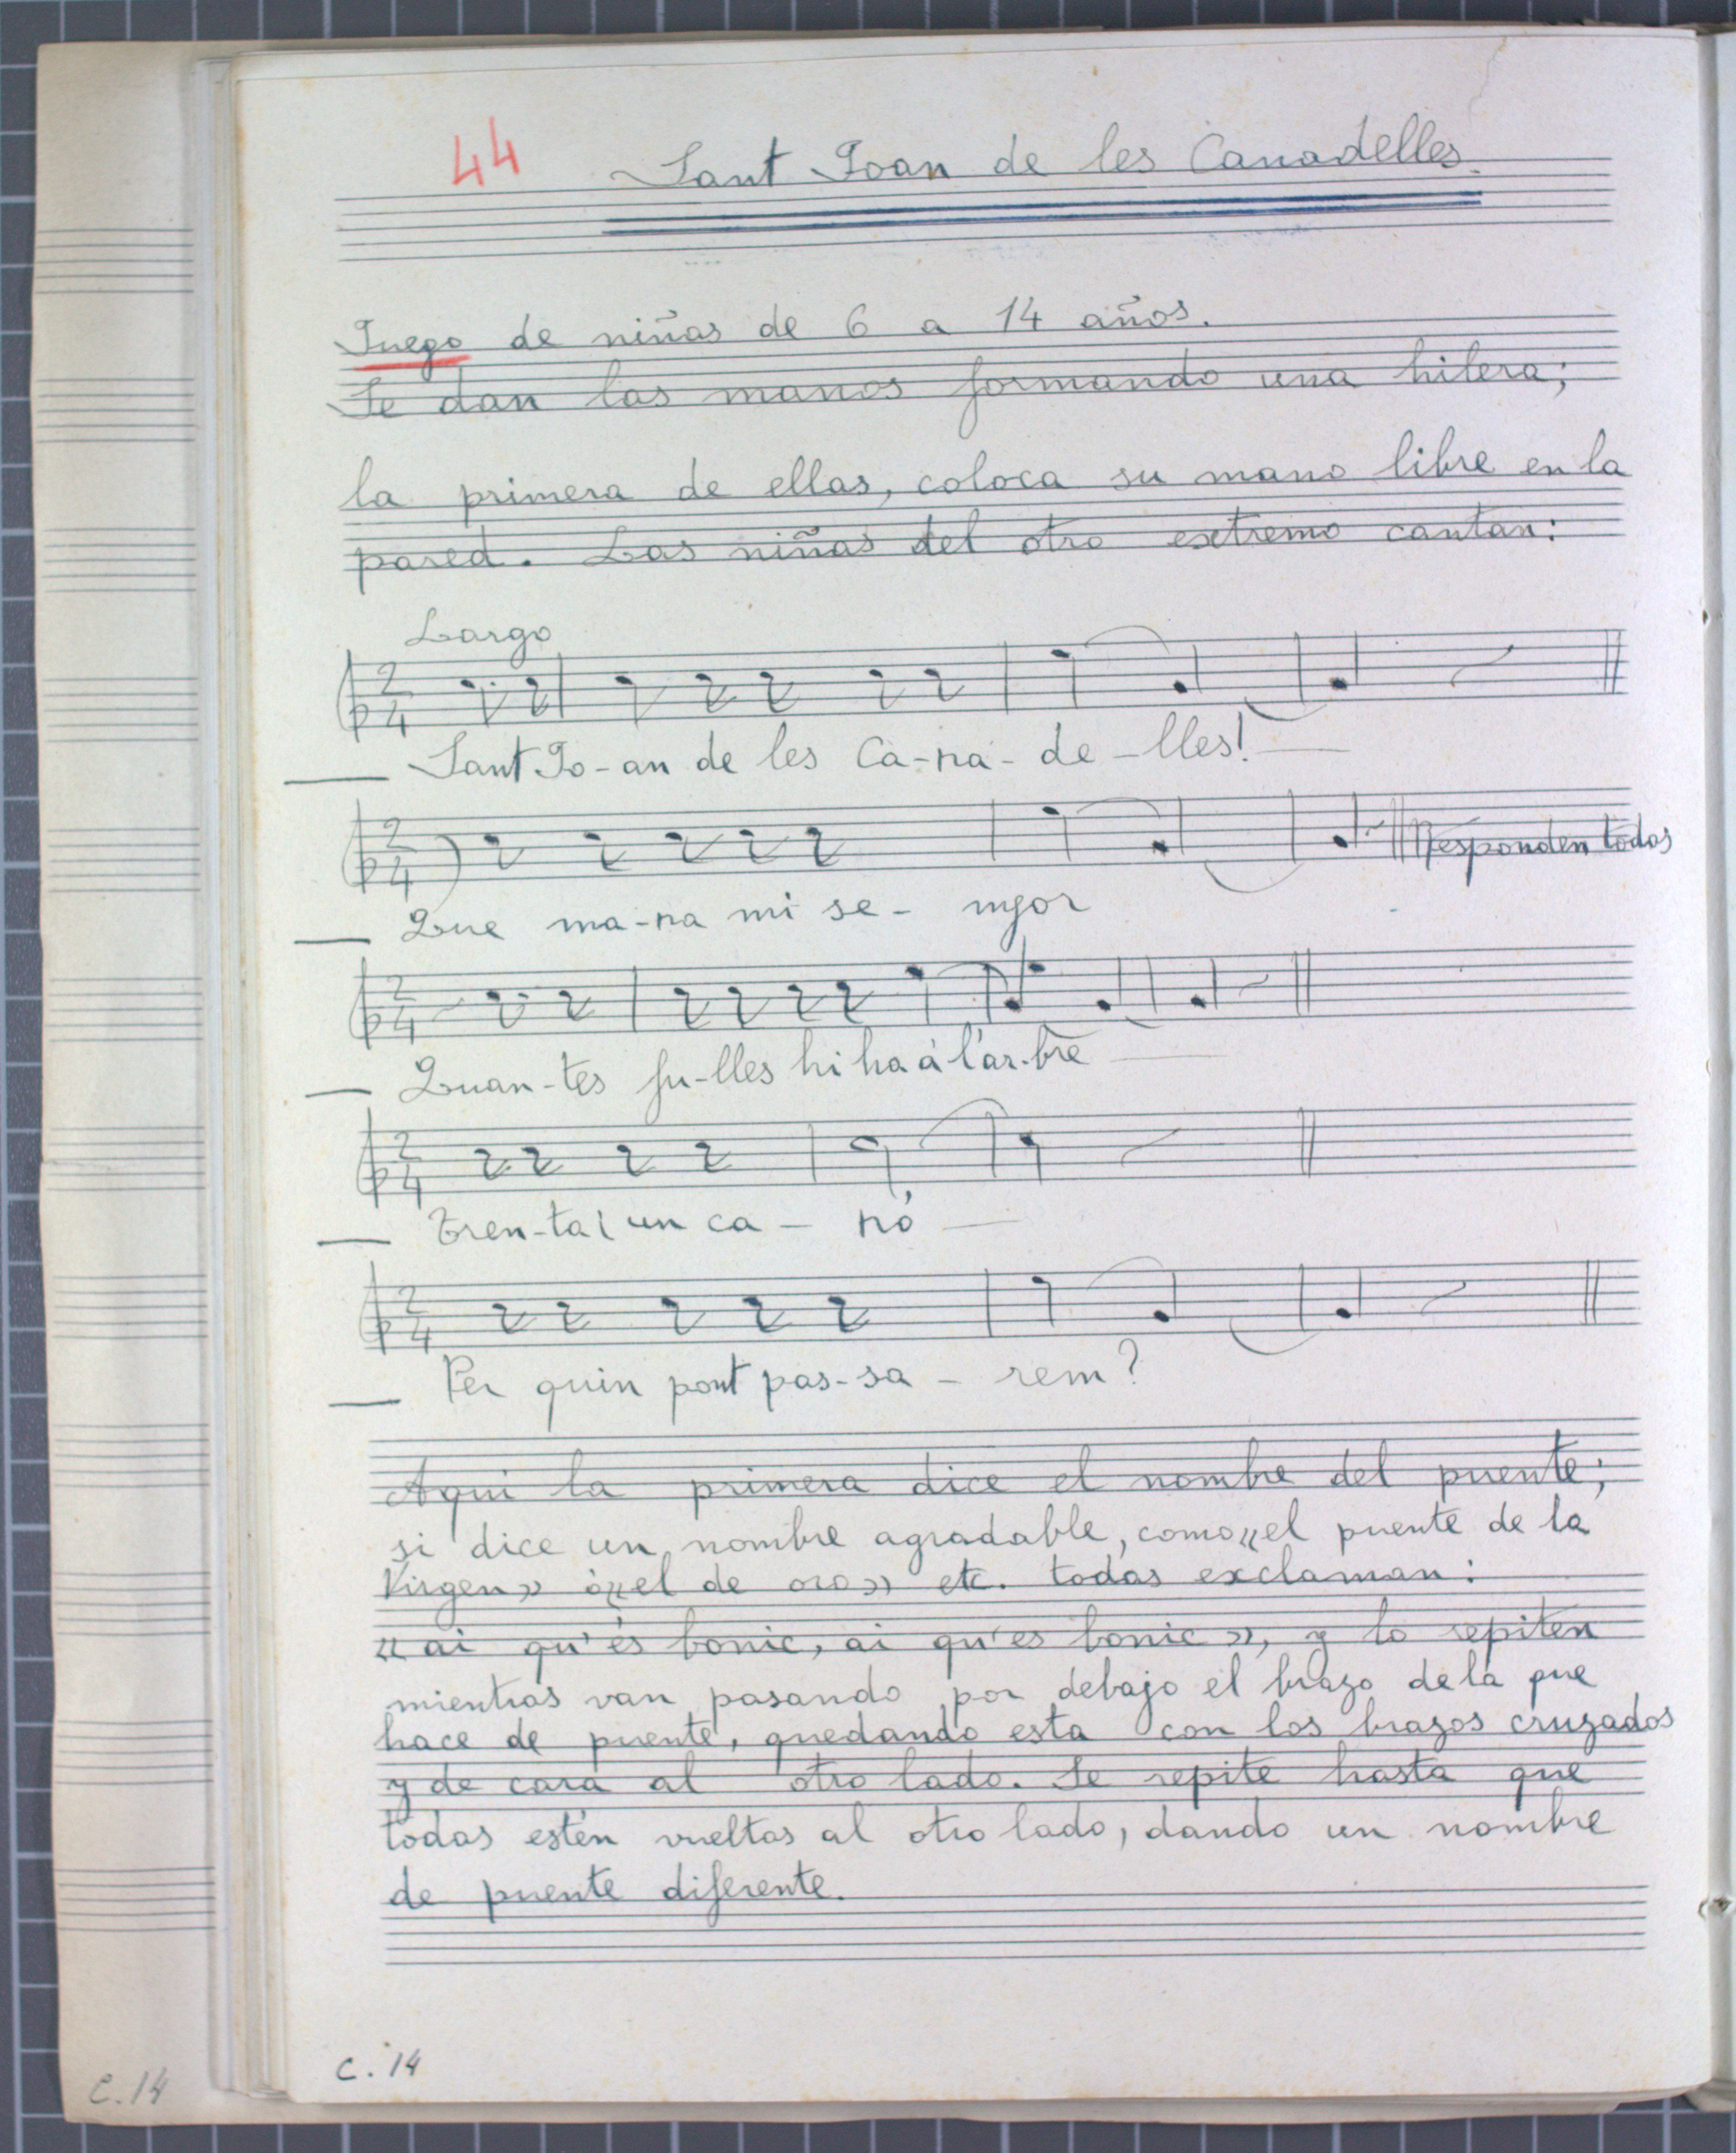 44 Sant Joan de les Canadelles.
Juego de niñas de 6 a 14 años.
Se dan las manos formando una hilera;
la primera de ellas, coloca su mano libre en la
pared. Las niñas del otro extremo cantan:
Largo
2 4
— Sant Jo-an de les Ca-na-de-lles! —
2 4
Responden todas
— Que ma-na mi se- nyor
2 4
— Quan-tes fu-lles hi ha á l'ar-bre —
2 4
— Tren-ta i un ca - nó —
2 4
— Per quin pont pas-sa - rem?
Aqui la primera dice el nombre del puente;
si dice un nombre agradable, como «el puente de la
Virgen» ó «el de oro» etc. todas exclaman:
«ai qu'és bonic, ai qu'es bonic», y lo repiten
mientras van pasando por debajo el brazo de la que
hace de puente, quedando esta con los brazos cruzados
y de cara al otro lado. Se repite hasta que
todas estén vueltas al otro lado, dando un nombre
de puente diferente.
C. 14
C. 14